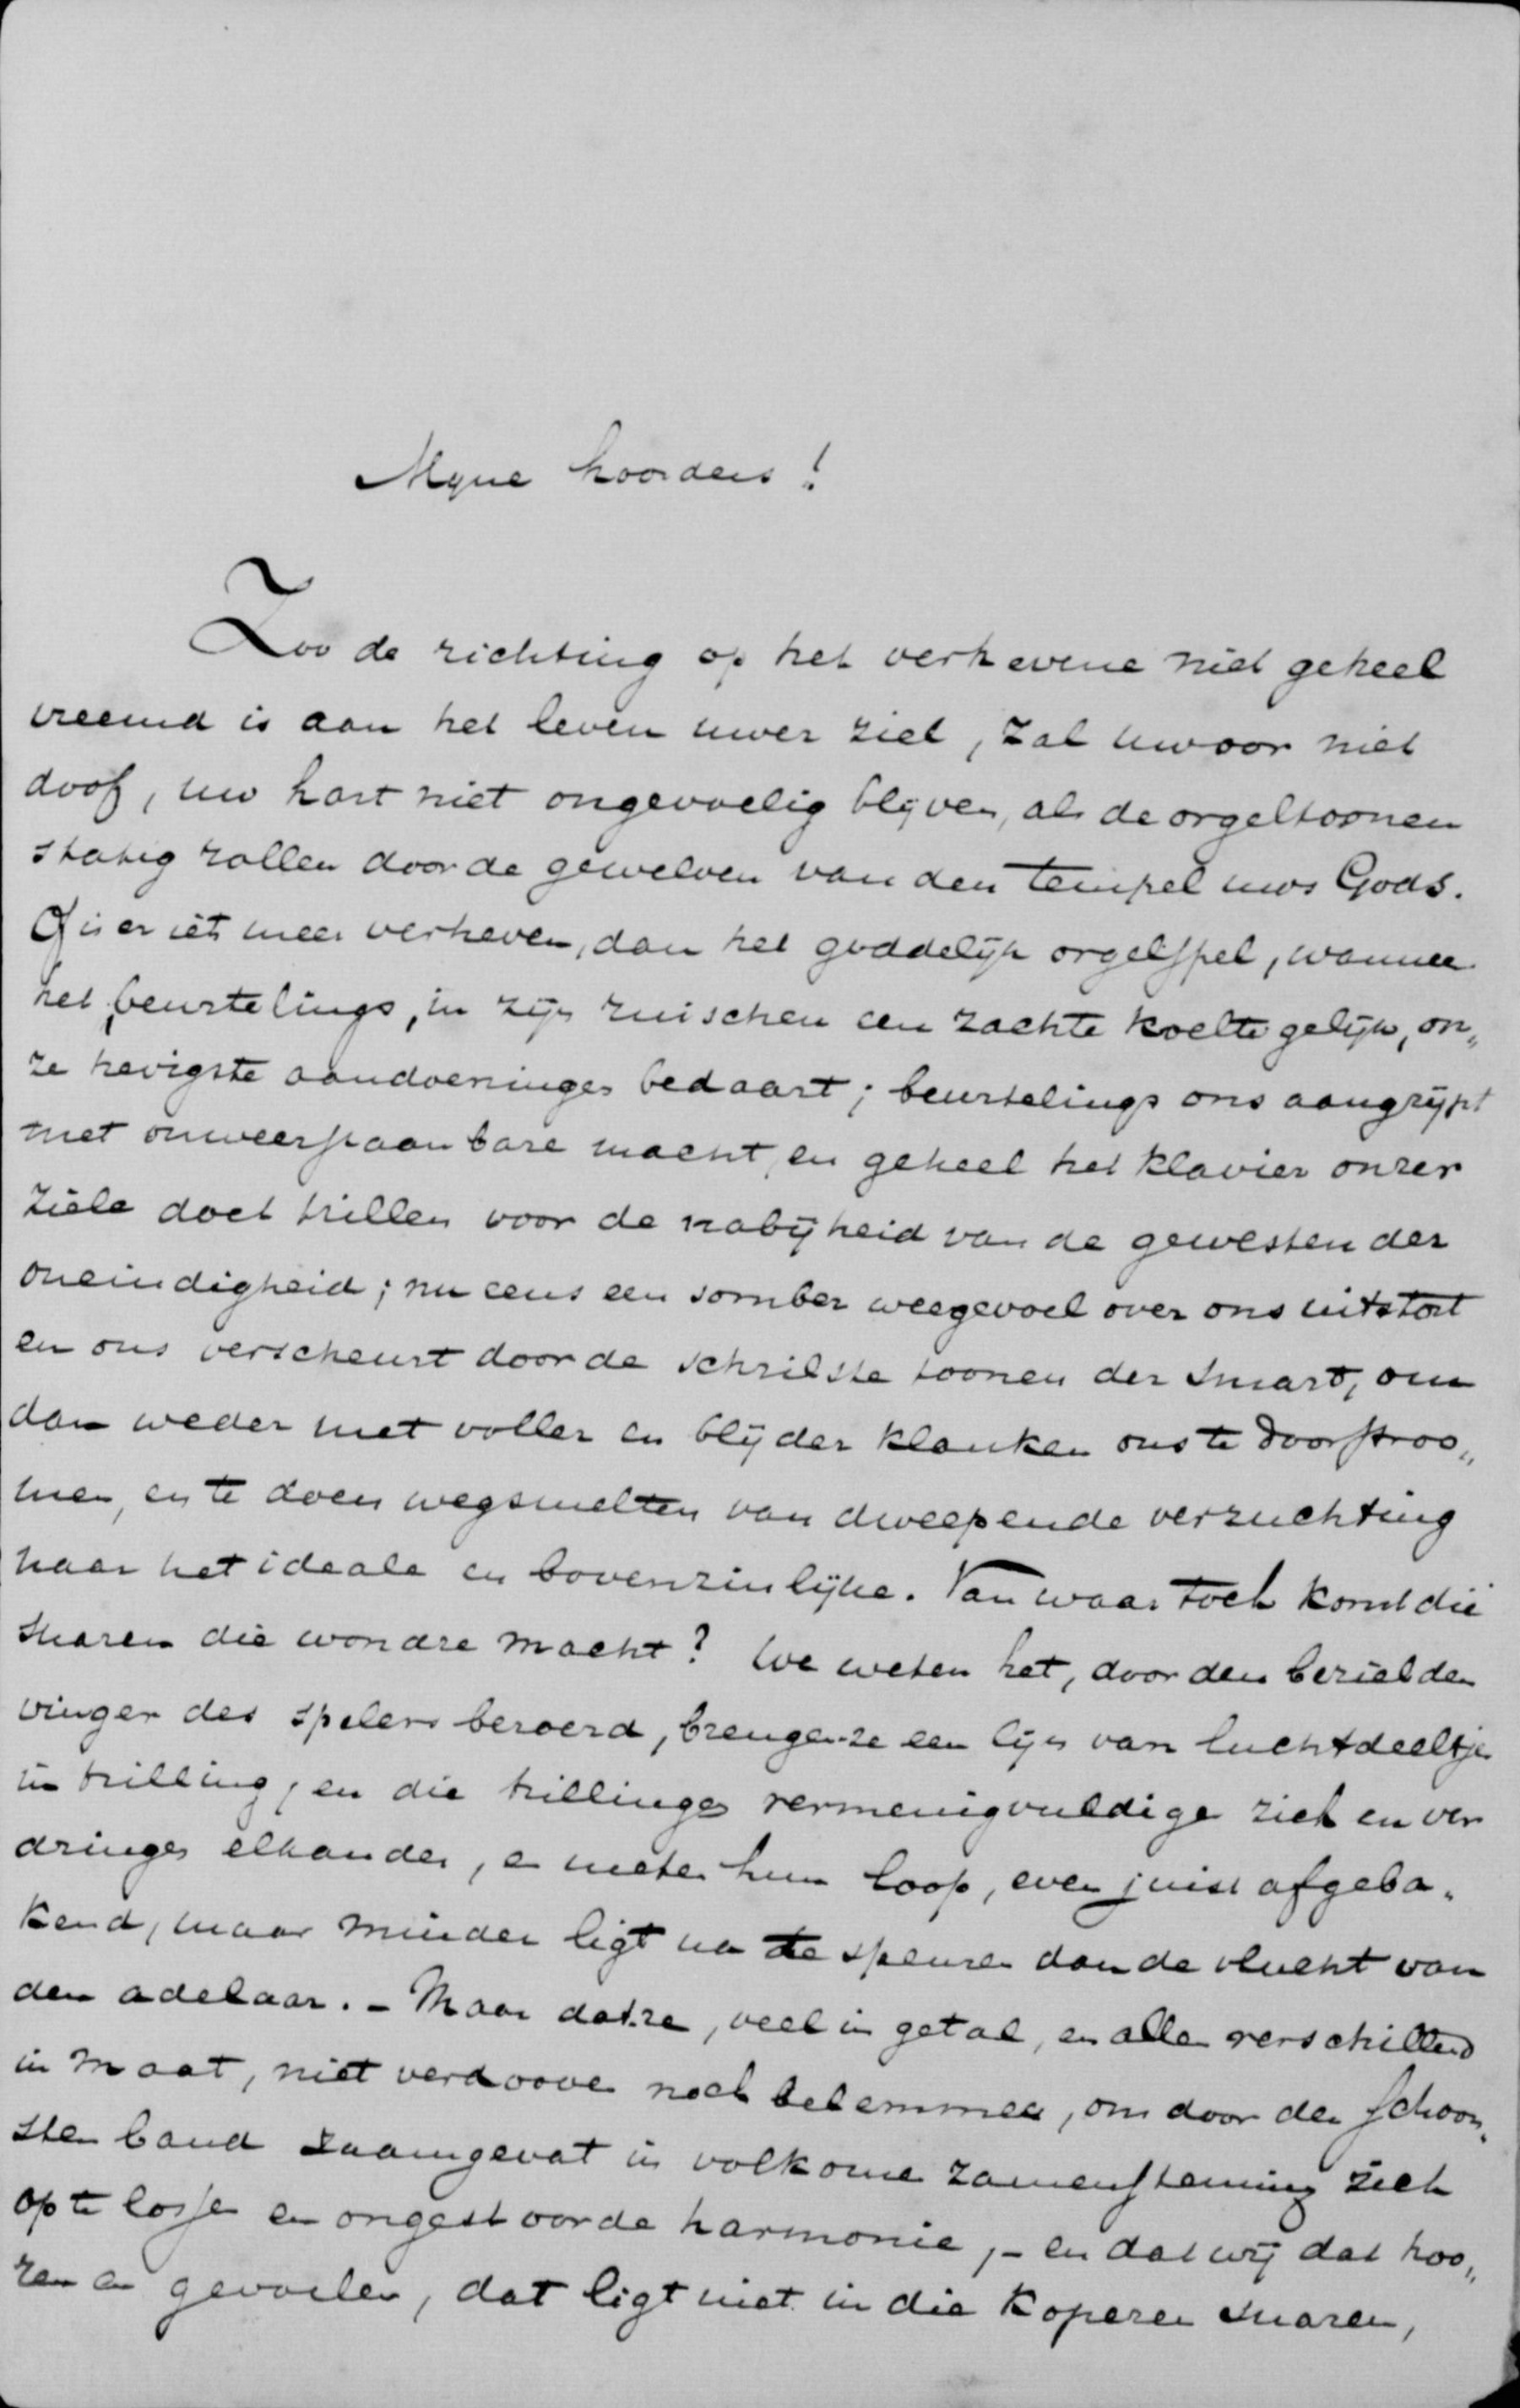 Myne hoorders!
Zoo de richting op het verhevene niet geheel
vreemd is aan het leven uwer ziel, zal uw oor niet
doof, uw hart niet ongevoelig blijven, als de orgeltoonen
statig rollen door de gewelven van den tempel uws Gods.
Of is er iets meer verheven, dan het goddelijk orgelspel, wanneer
het, beurtelings, in zijn ruischen een zachte koelte gelijk, on„
ze hevigste aandoeningen bedaart; beurtelings ons aangrijpt
met onweerstaanbare macht, en geheel het klavier onzer
ziele doet trillen voor de nabijheid van de gewesten der
oneindigheid; nu eens een somber weegevoel over ons uitstort
en ons verscheurt door de schrilste toonen der smart, om
dan weder met voller en blijder klanken ons te doorstroo„
men, en te doen wegsmelten van dweepende verzuchting
naar het ideale en bovenzinlijke. Van waar toch komt die
snaren die wondre macht? We weten het, door den bezielden
vinger des spelers beroerd, brengen ze een lijn van luchtdeeltjes
in trilling, en die trillingen vermenigvuldigen zich en ver
dringen elkander, en meten hun loop, even juist afgeba„
kend, maar minder ligt na te speuren dan de vlucht van
den adelaar. - Maar dat ze, veel in getal, en allen verschillend
in maat, niet verdooven noch belemmeren, om door den schoon„
sten band zaamgevat in volkomen zamenstemming zich
op te lossen en ongestoorde harmonie, - en dat wij dat hoo„
ren en gevoelen, dat ligt niet in die koperen snaren,